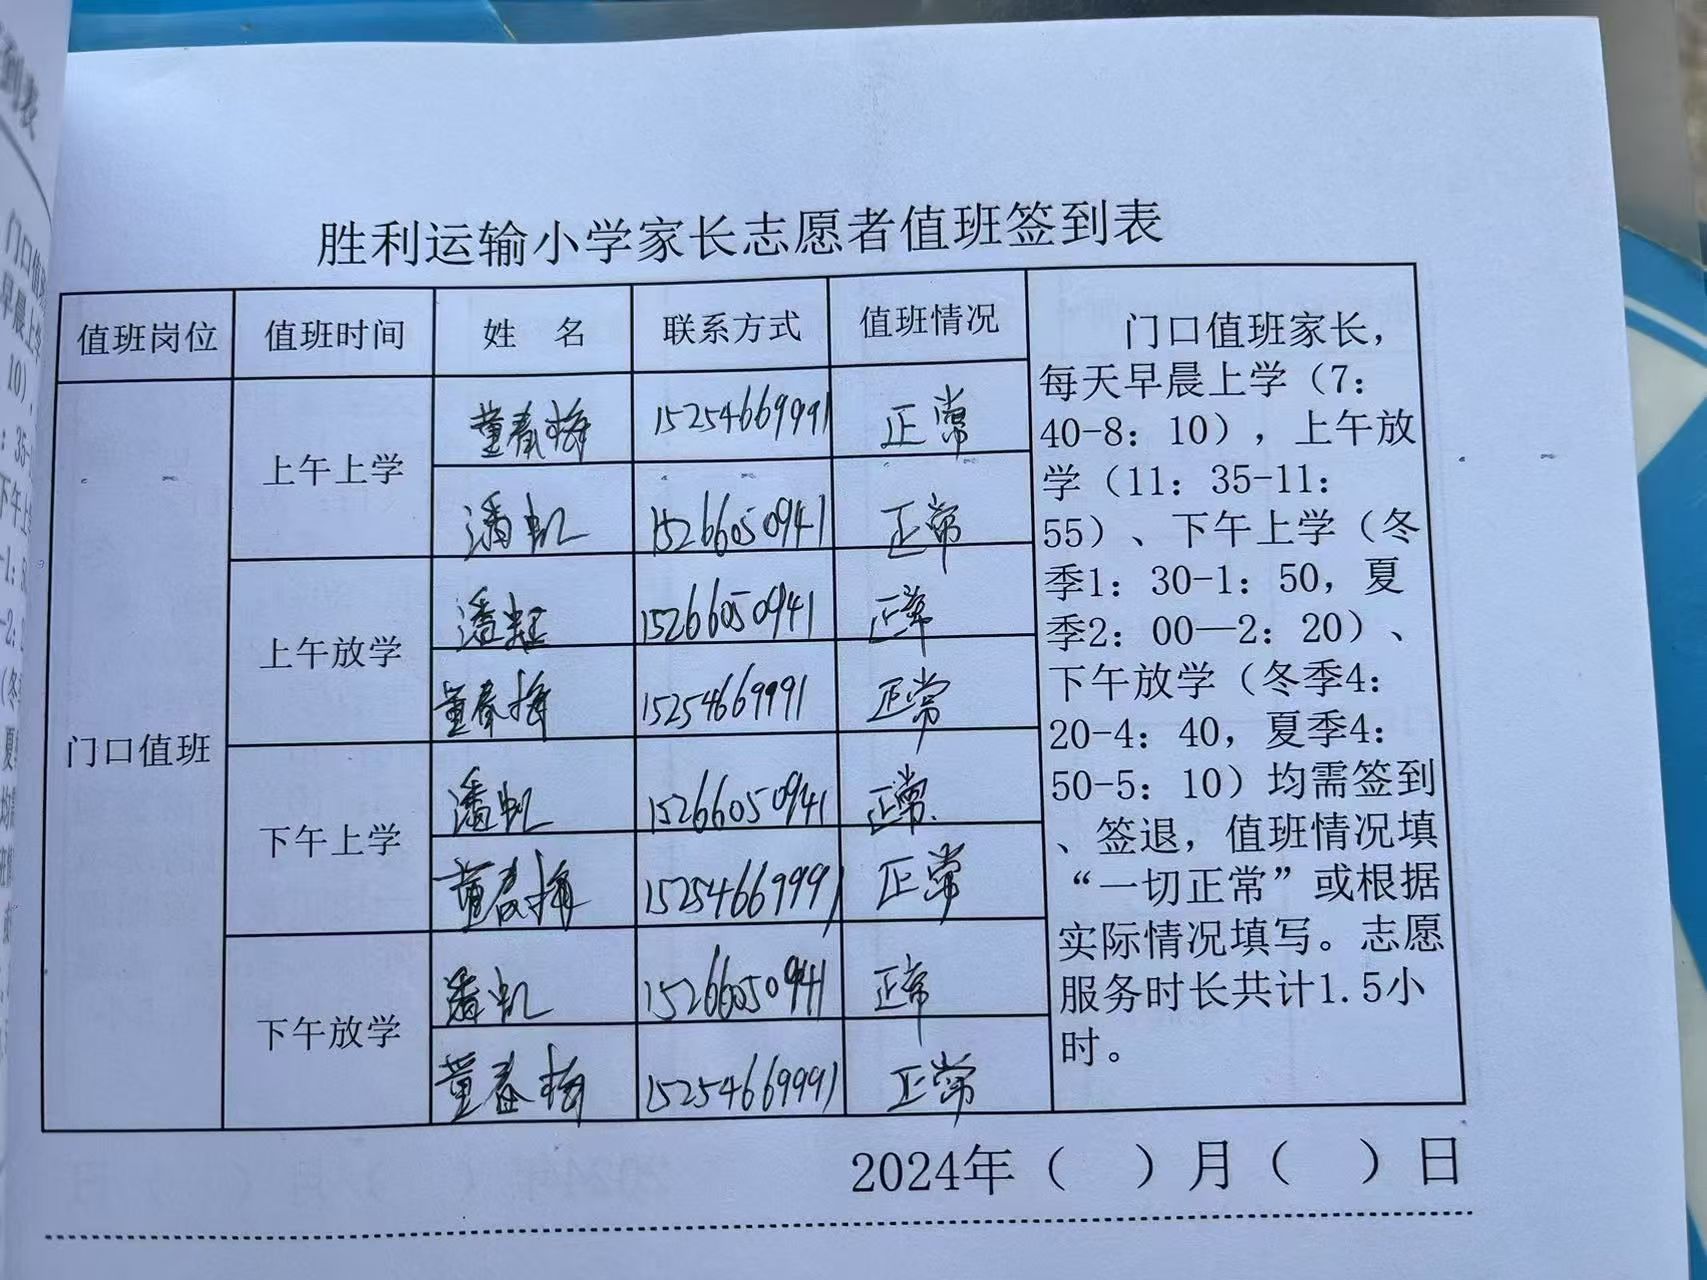 胜利运输小学家长志愿者值班签到表
值班岗位 值班时间 姓 名 联系方式 值班情况
门口值班
上午上学 董春梅 15254669991 正常
潘虹 15266050941 正常
上午放学 潘虹 15266050941 正常
董春梅 15254669991 正常
下午上学 潘虹 15266050941 正常
董春梅 15254669991 正常
下午放学 潘虹 15266050941 正常
董春梅 15254669991 正常
门口值班家长，
每天早晨上学（7：
40-8：10），上午放
学（11：35-11：
55）、下午上学（冬
季1：30-1：50，夏
季2：00—2：20）、
下午放学（冬季4：
20-4：40，夏季4：
50-5：10）均需签到
、签退，值班情况填
“一切正常”或根据
实际情况填写。志愿
服务时长共计1.5小
时。
2024年（ ）月（ ）日